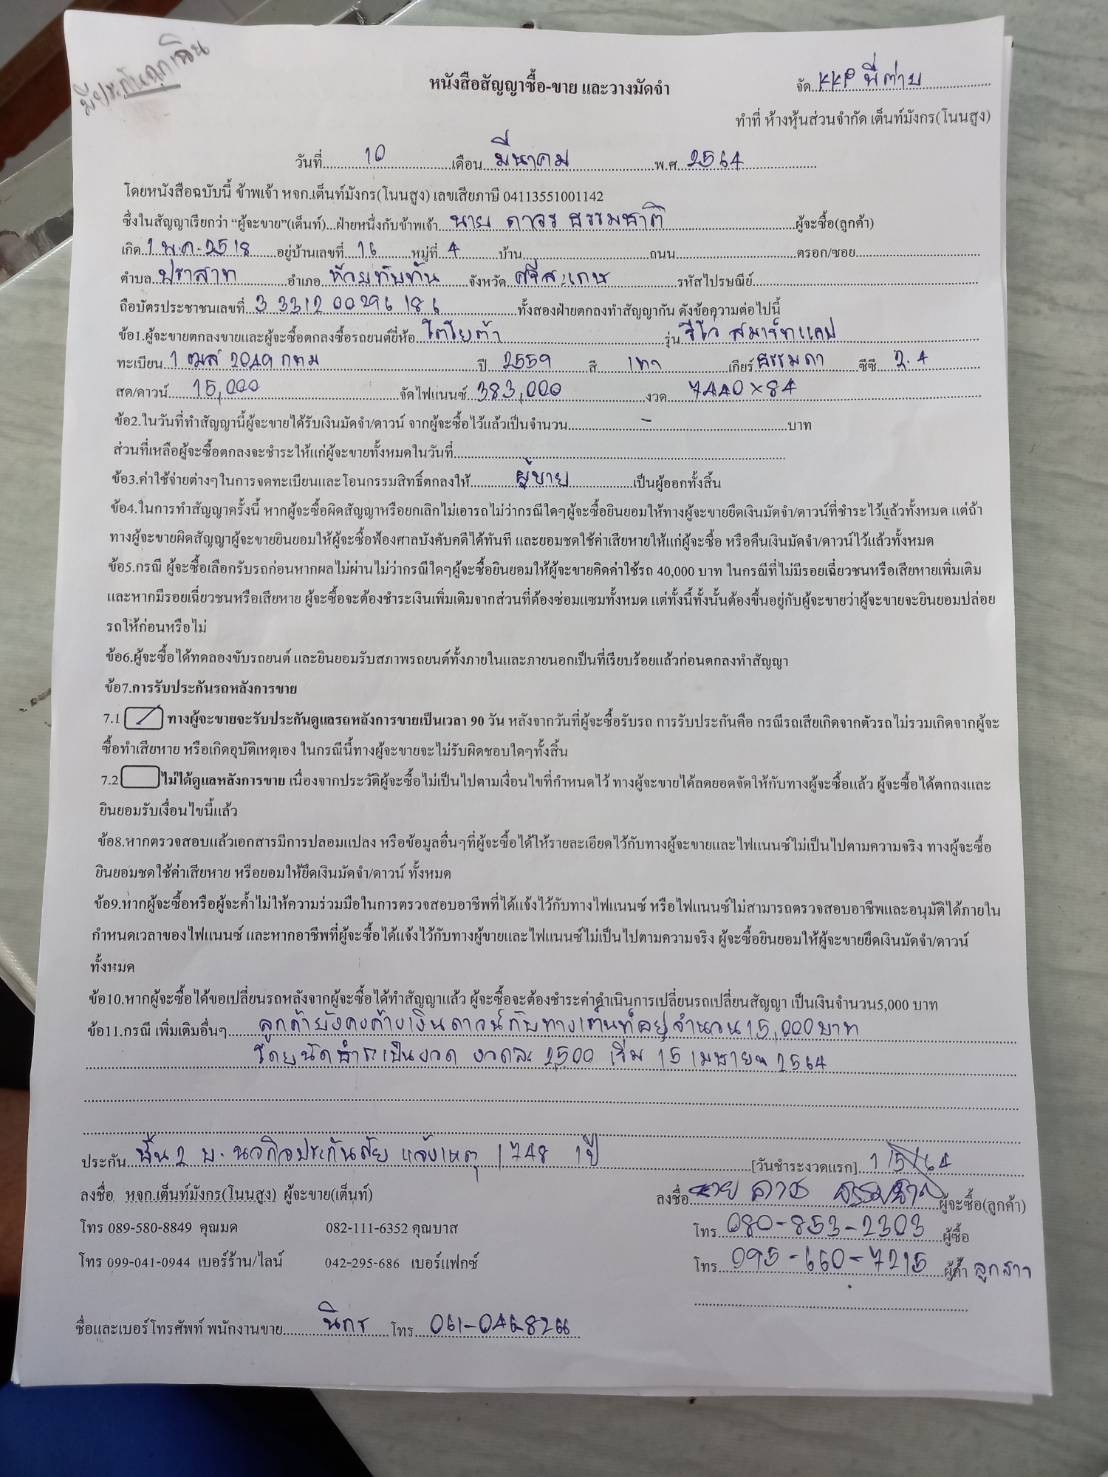 มีประกันฉุกเฉิน
หนังสือสัญญาซื้อ-ขาย และวางมัดจำ
จัด KKP พี่ต่าย
ทำที่ ห้างหุ้นส่วนจำกัด เต็นท์มังกร(โนนสูง)
วันที่ 10 เดือน มีนาคม พ.ศ. 2564
โดยหนังสือฉบับนี้ ข้าพเจ้า หจก.เต็นท์มังกร(โนนสูง) เลขเสียภาษี 04113551001142
ซึ่งในสัญญาเรียกว่า “ผู้จะขาย”(เต็นท์)...ฝ่ายหนึ่งกับข้าพเจ้า นาย ถาวร ธรรมชาติ ผู้จะซื้อ(ลูกค้า)
เกิด 1 พ.ค. 2518 อยู่บ้านเลขที่ 16 หมู่ที่ 4 บ้าน ถนน ตรอก/ซอย
ตำบล ปราสาท อำเภอ ห้วยทับทัน จังหวัด ศรีสะเกษ รหัสไปรษณีย์
ถือบัตรประชาชนเลขที่ 3 3312 00296 18 6 ทั้งสองฝ่ายตกลงทำสัญญากัน ดังข้อความต่อไปนี้
ข้อ1.ผู้จะขายตกลงขายและผู้จะซื้อตกลงซื้อรถยนต์ยี่ห้อ โตโยต้า รุ่น รีโว่ สมาร์ทแคป
ทะเบียน 1 ฒส 2049 กทม ปี 2559 สี เทา เกียร์ ธรรมดา ซีซี 2.4
สด/ดาวน์ 15,000 จัดไฟแนนซ์ 383,000 งวด 7440×84
ข้อ2.ในวันที่ทำสัญญานี้ผู้จะขายได้รับเงินมัดจำ/ดาวน์ จากผู้จะซื้อไว้แล้วเป็นจำนวน - บาท
ส่วนที่เหลือผู้จะซื้อตกลงจะชำระให้แก่ผู้จะขายทั้งหมดในวันที่
ข้อ3.ค่าใช้จ่ายต่างๆในการจดทะเบียนและโอนกรรมสิทธิ์ตกลงให้ ผู้ขาย เป็นผู้ออกทั้งสิ้น
ข้อ4.ในการทำสัญญาครั้งนี้ หากผู้จะซื้อผิดสัญญาหรือยกเลิกไม่เอารถไม่ว่ากรณีใดๆผู้จะซื้อยินยอมให้ทางผู้จะขายยึดเงินมัดจำ/ดาวน์ที่ชำระไว้แล้วทั้งหมด แต่ถ้า
ทางผู้จะขายผิดสัญญาผู้จะขายยินยอมให้ผู้จะซื้อฟ้องศาลบังคับคดีได้ทันที และยอมชดใช้ค่าเสียหายให้แก่ผู้จะซื้อ หรือคืนเงินมัดจำ/ดาวน์ไว้แล้วทั้งหมด
ข้อ5.กรณี ผู้จะซื้อเลือกรับรถก่อนหากผลไม่ผ่านไม่ว่ากรณีใดๆผู้จะซื้อยินยอมให้ผู้จะขายคิดค่าใช้รถ 40,000 บาท ในกรณีที่ไม่มีรอยเฉี่ยวชนหรือเสียหายเพิ่มเติม
และหากมีรอยเฉี่ยวชนหรือเสียหาย ผู้จะซื้อจะต้องชำระเงินเพิ่มเติมจากส่วนที่ต้องซ่อมแซมทั้งหมด แต่ทั้งนี้ทั้งนั้นต้องขึ้นอยู่กับผู้จะขายว่าผู้จะขายจะยินยอมปล่อย
รถให้ก่อนหรือไม่
ข้อ6.ผู้จะซื้อได้ทดลองขับรถยนต์ และยินยอมรับสภาพรถยนต์ทั้งภายในและภายนอกเป็นที่เรียบร้อยแล้วก่อนตกลงทำสัญญา
ข้อ7.การรับประกันรถหลังการขาย
7.1 ทางผู้จะขายจะรับประกันดูแลรถหลังการขายเป็นเวลา 90 วัน หลังจากวันที่ผู้จะซื้อรับรถ การรับประกันคือ กรณีรถเสียเกิดจากตัวรถไม่รวมเกิดจากผู้จะ
ซื้อทำเสียหาย หรือเกิดอุบัติเหตุเอง ในกรณีนี้ทางผู้จะขายจะไม่รับผิดชอบใดๆทั้งสิ้น
7.2 ไม่ได้ดูแลหลังการขาย เนื่องจากประวัติผู้จะซื้อไม่เป็นไปตามเงื่อนไขที่กำหนดไว้ ทางผู้จะขายได้ลดยอดจัดให้กับทางผู้จะซื้อแล้ว ผู้จะซื้อได้ตกลงและ
ยินยอมรับเงื่อนไขนี้แล้ว
ข้อ8.หากตรวจสอบแล้วเอกสารมีการปลอมแปลง หรือข้อมูลอื่นๆที่ผู้จะซื้อได้ให้รายละเอียดไว้กับทางผู้จะขายและไฟแนนซ์ไม่เป็นไปตามความจริง ทางผู้จะซื้อ
ยินยอมชดใช้ค่าเสียหาย หรือยอมให้ยึดเงินมัดจำ/ดาวน์ ทั้งหมด
ข้อ9.หากผู้จะซื้อหรือผู้จะค้ำไม่ให้ความร่วมมือในการตรวจสอบอาชีพที่ได้แจ้งไว้กับทางไฟแนนซ์ หรือไฟแนนซ์ไม่สามารถตรวจสอบอาชีพและอนุมัติได้ภายใน
กำหนดเวลาของไฟแนนซ์ และหากอาชีพที่ผู้จะซื้อได้แจ้งไว้กับทางผู้ขายและไฟแนนซ์ไม่เป็นไปตามความจริง ผู้จะซื้อยินยอมให้ผู้จะขายยึดเงินมัดจำ/ดาวน์
ทั้งหมด
ข้อ10.หากผู้จะซื้อได้ขอเปลี่ยนรถหลังจากผู้จะซื้อได้ทำสัญญาแล้ว ผู้จะซื้อจะต้องชำระค่าดำเนินการเปลี่ยนรถเปลี่ยนสัญญา เป็นเงินจำนวน5,000 บาท
ข้อ11.กรณี เพิ่มเติมอื่นๆ ลูกค้ายังคงค้างเงินดาวน์กับทางเต็นท์อยู่จำนวน 15,000 บาท
โดยนัดชำระเป็นงวด งวดละ 2,500 เริ่ม 15 เมษายน 2564
ประกัน ชั้น 2 บ. นวกิจประกันภัย แจ้งเหตุ 1748 1 ปี [วันชำระงวดแรก] 1/5/64
ลงชื่อ หจก.เต็นท์มังกร(โนนสูง) ผู้จะขาย(เต็นท์) ลงชื่อ นาย ถาวร ธรรมชาติ ผู้จะซื้อ(ลูกค้า)
โทร 089-580-8849 คุณมด 082-111-6352 คุณบาส โทร 080-853-2303 ผู้ซื้อ
โทร 099-041-0944 เบอร์ร้าน/ไลน์ 042-295-686 เบอร์แฟกซ์ โทร 095-660-7215 ผู้ค้ำ ลูกสาว
ชื่อและเบอร์โทรศัพท์ พนักงานขาย นิกร โทร 061-0468266